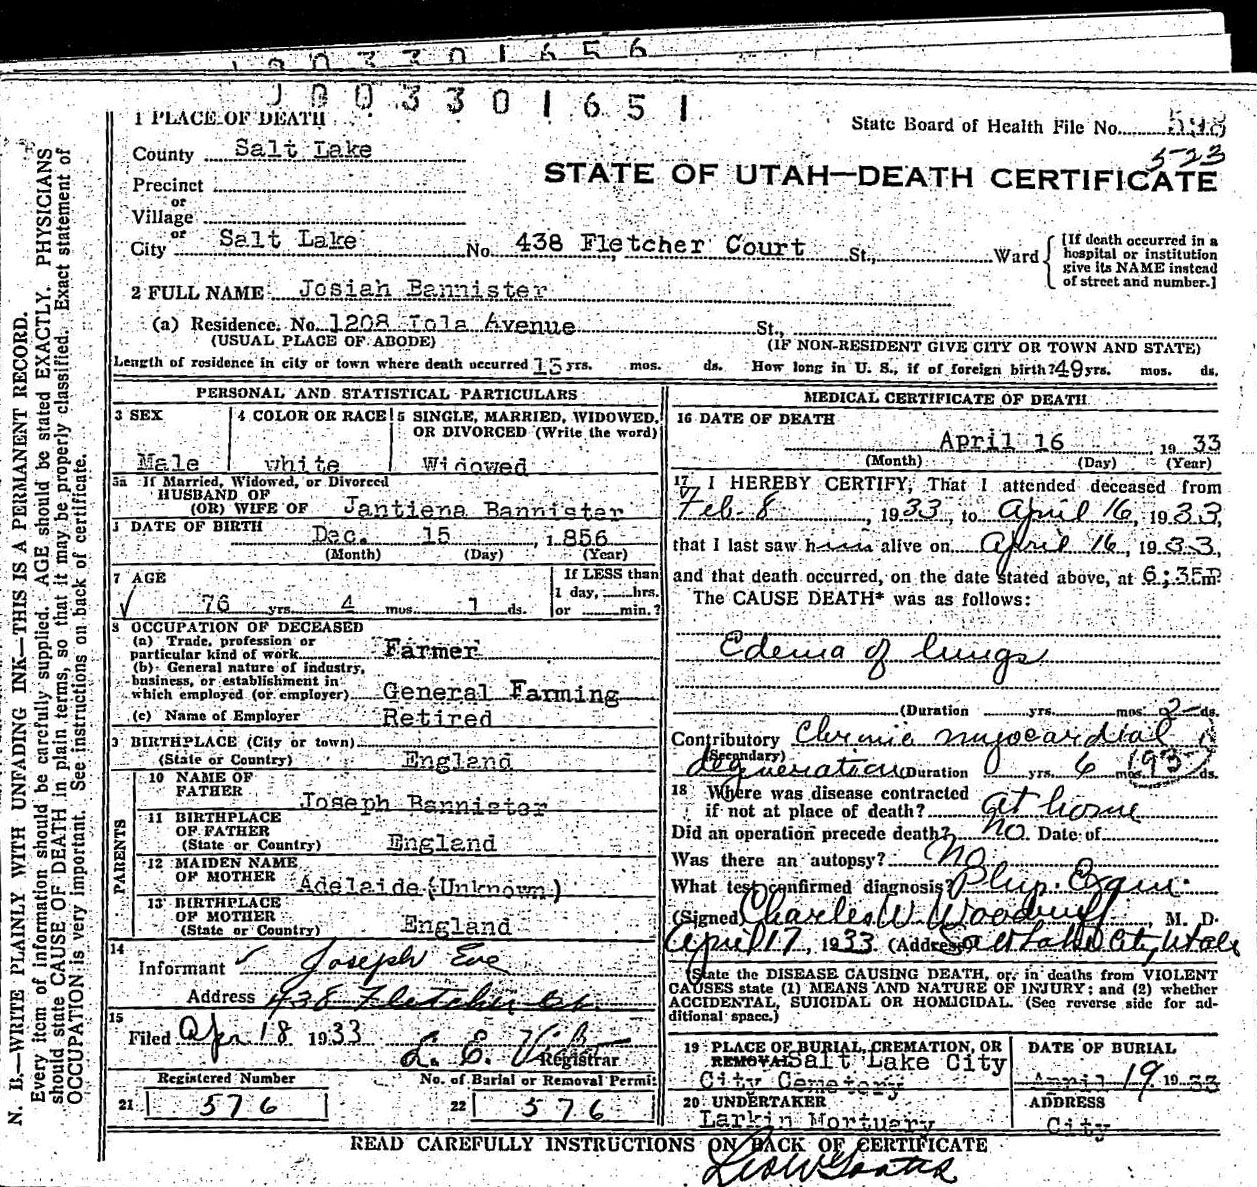 1003301656
1003301651
1 PLACE OF DEATH
State Board of Health File No. 598
523
County Salt Lake
STATE OF UTAH—DEATH CERTIFICATE
Precinct
or
Village
or
City Salt Lake No. 438 Fletcher Court St., Ward
[If death occurred in a
hospital or institution
give its NAME instead
of street and number.]
2 FULL NAME Josiah Bannister
(a) Residence. No. 1208 Iola Avenue St.,
(USUAL PLACE OF ABODE) (IF NON-RESIDENT GIVE CITY OR TOWN AND STATE)
Length of residence in city or town where death occurred 15 yrs. mos. ds. How long in U. S., if of foreign birth? 49 yrs. mos. ds.
PERSONAL AND STATISTICAL PARTICULARS
3 SEX 4 COLOR OR RACE 5 SINGLE, MARRIED, WIDOWED,
OR DIVORCED (Write the word)
Male white Widowed
5a If Married, Widowed, or Divorced
HUSBAND OF
(OR) WIFE OF Jantiena Bannister
DATE OF BIRTH
Dec. 15, 1856
(Month) (Day) (Year)
7 AGE If LESS than
1 day, hrs.
76 yrs. 4 mos. 1 ds. or min.?
8 OCCUPATION OF DECEASED
(a) Trade, profession or
particular kind of work Farmer
(b) General nature of industry,
business, or establishment in
which employed (or employer) General Farming
(c) Name of Employer Retired
9 BIRTHPLACE (City or town)
(State or Country) England
PARENTS
10 NAME OF
FATHER Joseph Bannister
11 BIRTHPLACE
OF FATHER
(State or Country) England
12 MAIDEN NAME
OF MOTHER Adelaide (Unknown)
13 BIRTHPLACE
OF MOTHER
(State or Country) England
14
Informant Joseph Eve
Address 438 Fletcher Ct.
15
Filed Apr 18 1933
L. E.
Registrar
Registered Number No. of Burial or Removal Permit
21 576 22 576
MEDICAL CERTIFICATE OF DEATH
16 DATE OF DEATH
April 16 1933
(Month) (Day) (Year)
17 I HEREBY CERTIFY, That I attended deceased from
Feb. 8, 1933, to April 16, 1933,
that I last saw him alive on April 16, 1933,
and that death occurred, on the date stated above, at 6:35P m.
The CAUSE DEATH* was as follows:
Edema of lungs
(Duration yrs. mos. 2 ds.
Contributory Chronic myocardial
(Secondary)
degeneration (Duration yrs. 6 mos. ds.
193
18 Where was disease contracted
if not at place of death? at home
Did an operation precede death? no Date of
Was there an autopsy? no
What test confirmed diagnosis? Phys. Exam.
(Signed) Charles W. Woodruff, M. D.
April 17, 1933 (Address) Salt Lake City, Utah
(State the DISEASE CAUSING DEATH, or, in deaths from VIOLENT
CAUSES state (1) MEANS AND NATURE OF INJURY; and (2) whether
ACCIDENTAL, SUICIDAL OR HOMICIDAL. (See reverse side for ad-
ditional space.)
19 PLACE OF BURIAL, CREMATION, OR DATE OF BURIAL
REMOVAL Salt Lake City
City Cemetery April 19 1933
20 UNDERTAKER ADDRESS
Larkin Mortuary City
READ CAREFULLY INSTRUCTIONS ON BACK OF CERTIFICATE
N. B.—WRITE PLAINLY WITH UNFADING INK—THIS IS A PERMANENT RECORD.
Every item of information should be carefully supplied. AGE should be stated EXACTLY. PHYSICIANS
should state CAUSE OF DEATH in plain terms, so that it may be properly classified. Exact statement of
OCCUPATION is very important. See instructions on back of certificate.